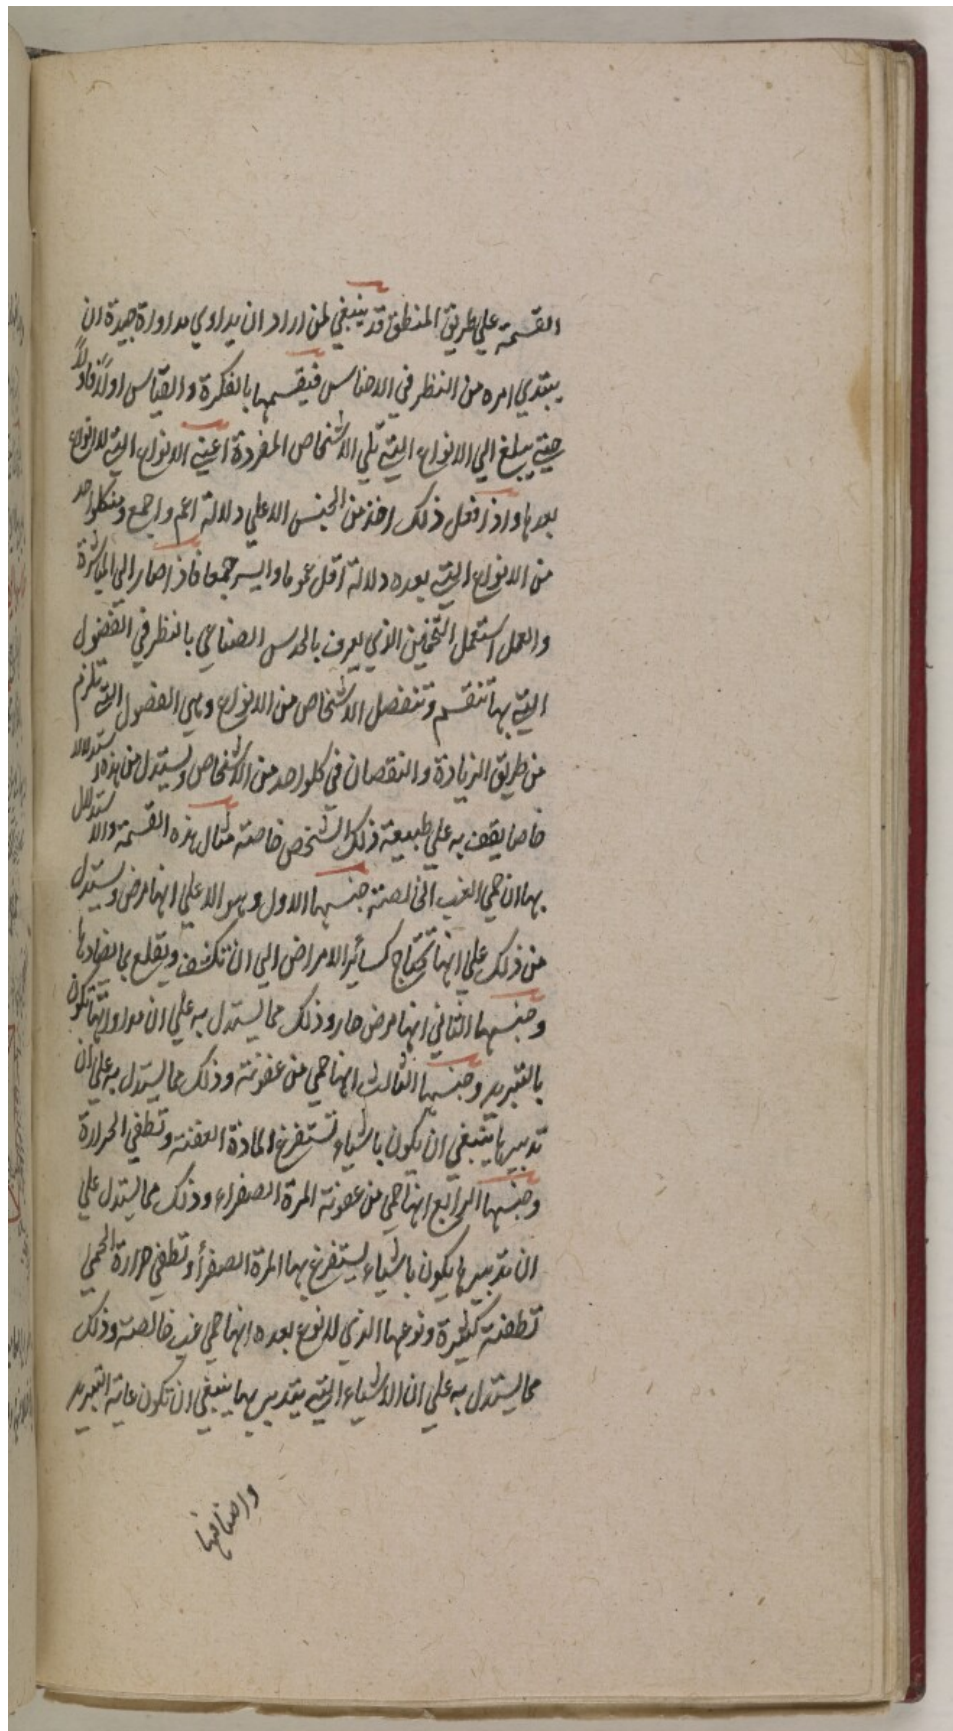 القسمة علي طريق المنطق قد ينبغي لمن اراد ان يداوي مداواة جيدة ان
يبتدي امره من النظر في الاجناس فيقسمها بالفكرة والقياس اولاً فاولاً
حتي يبلغ الي الانواع التي تلي الاشخاص المفردة اعني الانواع التي لا انواع
بعدها واذا فعل ذلك اخذ من الجنس الاعلي دلالة اعم واجمع ومن كلواحد
من الانواع التي بعده دلالة اقل عموما وايسر جمعا فاذا صار الي المباشرة
والعمل استعمل التخمين الذي يعرف بالحدس الصناعي بالنظر في الفصول
التي بها تنقسم وتنفصل الاشخاص من الانواع وهي الفصول التي تلزم
من طريق الزيادة والنقصان في كلواحد من الاشخاص ويستدل من هذه استدلالا
خاصا يقف به علي طبيعة ذلك الشخص خاصة مثال هذه القسمة والاستدلال
بها ان حمي الغب الخالصة جنسها الاول وهو الاعلي انها مرض ويستدل
من ذلك علي انها تحتاج كسائر الامراض الي ان تكشف ويقلع بما يضادها
وجنسها الثاني انها مرض حار وذلك مما يستدل به علي ان مداواتها تكون
بالتبريد وجنسها الثالث انها حمي من عفونة وذلك مما يستدل به علي ان
تدبيرها ينبغي ان يكون باشياء تستفرغ المادة العفنة وتطفي الحرارة
وجنسها الرابع انها حمي من عفونة المرة الصفراء وذلك مما يستدل علي
ان تدبيرها يكون باشياء يستفرغ بها المرة الصفرأ وتطفي حرارة الحمي
تطفئة كثيرة ونوعها الذي لا نوع بعده انها حمي غب خالصة وذلك
مما يستدل به علي ان الاشياء التي يتدبر بها ينبغي ان تكون غاية التبريد